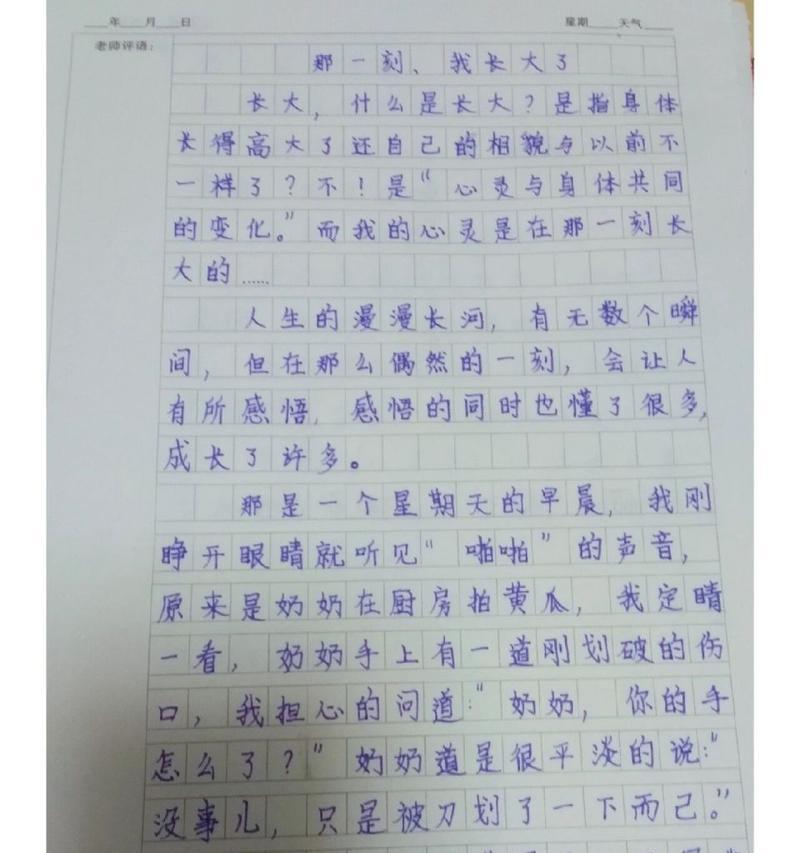 年 月 日 星期 天气
老师评语：
那一刻、我长大了
长大，什么是长大？是指身体
长得高大了还自己的相貌与以前不
一样了？不！是“心灵与身体共同
的变化。”而我的心灵是在那一刻长
大的……
人生的漫漫长河，有无数个瞬
间，但在那么偶然的一刻，会让人
有所感悟，感悟的同时也懂了很多，
成长了许多。
那是一个星期天的早晨，我刚
睁开眼睛就听见“啪啪”的声音，
原来是奶奶在厨房拍黄瓜，我定睛
一看，奶奶手上有一道刚划破的伤
口，我担心的问道：“奶奶，你的手
怎么了？”奶奶道是很平淡的说：“
没事儿，只是被刀划了一下而已。”